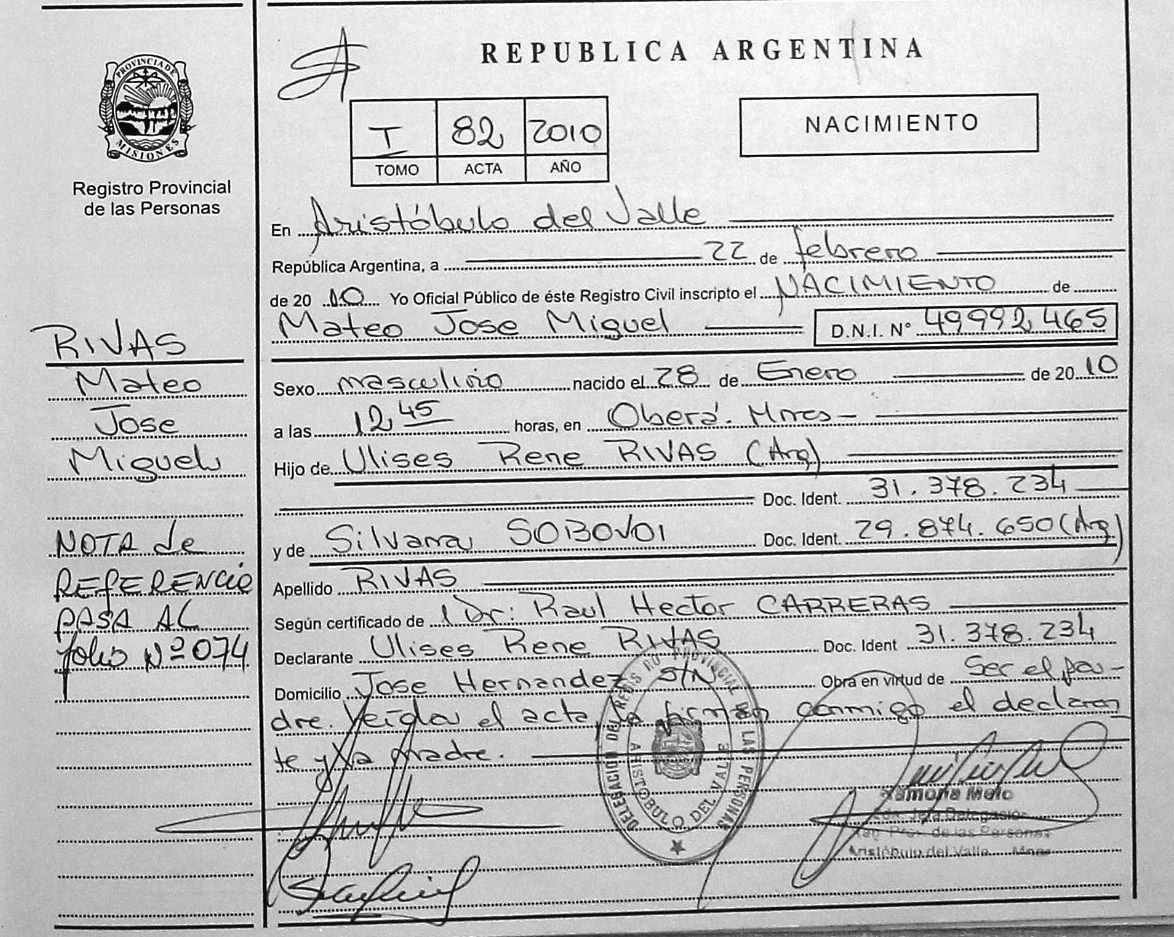 PROVINCIA DE
MISIONES
Registro Provincial
de las Personas
RIVAS
Mateo
Jose
Miguel
NOTA de
REFERENCIA
PASA AL
folio Nº 074
REPUBLICA ARGENTINA
I 82 2010
TOMO ACTA AÑO
NACIMIENTO
En Aristóbulo del Valle
República Argentina, a 22 de febrero
de 20 10 Yo Oficial Público de éste Registro Civil inscripto el NACIMIENTO de
Mateo Jose Miguel D.N.I. N° 49992465
Sexo masculino nacido el 28 de Enero de 20 10
a las 12 45 horas, en Oberá. Mnes-
Hijo de Ulises Rene RIVAS (Arg)
Doc. Ident. 31.378.234
y de Silvana SOBOVOI Doc. Ident. 29.874.650 (Arg)
Apellido RIVAS
Según certificado de Dr: Raul Hector CARRERAS
Declarante Ulises Rene RIVAS Doc. Ident 31.378.234
Domicilio Jose Hernandez S/N Obra en virtud de Ser el pa-
dre. Leída el acta, la firman conmigo el declaran
te y la madre.
DELEGACION DEL REGISTRO PROVINCIAL DE LAS PERSONAS
ARISTOBULO DEL VALLE
Ramona Melo
Jefa Delegación
Reg. Prov. de las Personas
Aristóbulo del Valle Mnes